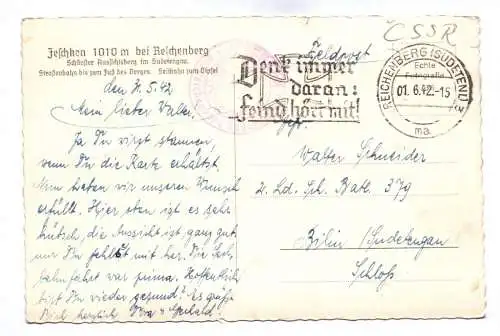 Jeschken 1010 m bei Reichenberg
Schönster Aussichtsberg im Sudetengau.
Straßenbahn bis zum Fuß des Berges. Seilbahn zum Gipfel
den 31. 5. 42.
Mein lieber Vater.
Ja Du wirst staunen,
wenn Du die Karte erhältst.
Nun haben wir unseren Wunsch
erfüllt. Hier oben ist es sehr
hübsch, die Aussicht ist ganz gut
nur Du fehlst mit her. Die Seil-
bahnfahrt war prima. Hoffentlich
bist Du wieder gesund? Es grüßt
Dich herzlich
Feldpost
CSSR
Denk immer
daran:
feind hört mit!
REICHENBERG (SUDETENL) 2
Echte
Fotografie
01.6.42.-15
ma
Walter Schneider
2. Ld. Sch. Batl. 379
Bilin /Sudetengau
Schloß